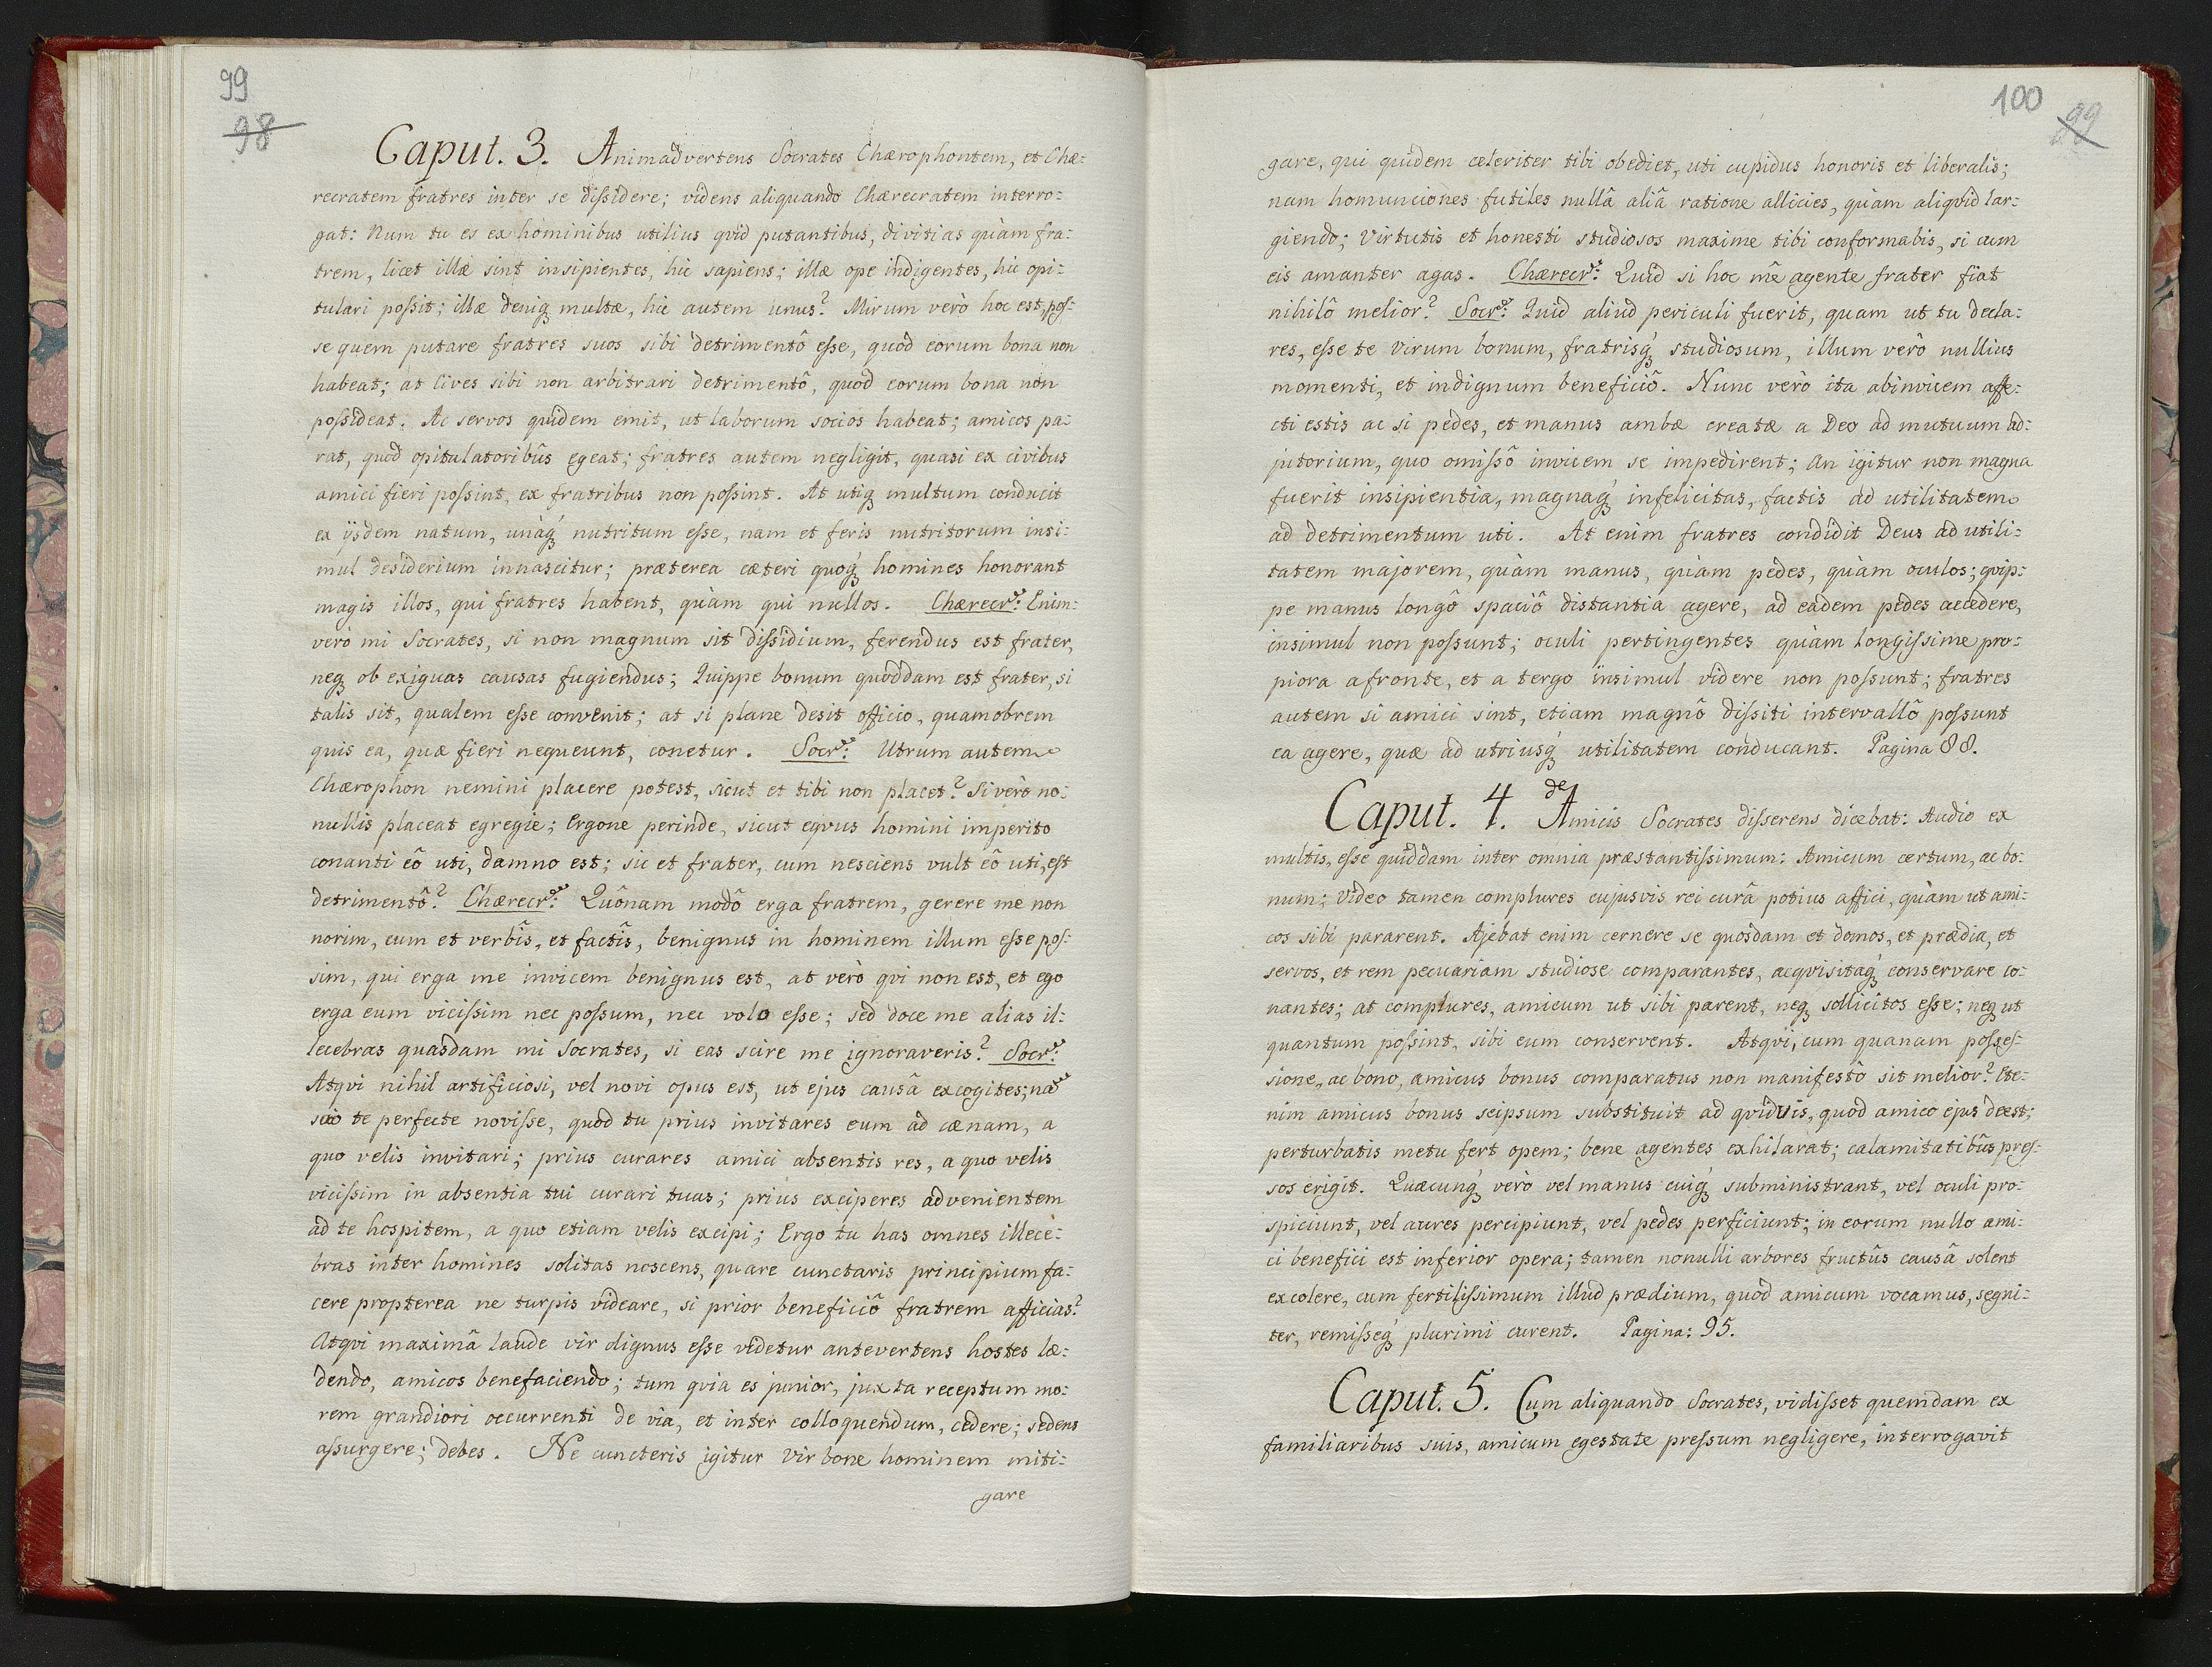 99
98
Caput. 3. Animadvertens Socrates Chærophontem, et Chæ:
recratem fratres inter se dißidere; videns aliquando Chærecratem interro:
gat: Num tu es ex hominibus utilius qvid putantibus, divitias quàm fra:
trem, licet illæ sint insipientes, hic sapiens; illæ ope indigentes, hic opi:
tulari poßit; illæ deniq multæ, hic autem unus? Mirum verò hoc est, pos:
se quem putare fratres suos sibi detrimentô eße, quod eorum bona non
habeat; at Cives sibi non arbitrari detrimentô, quod eorum bona non
poßideat. Ac servos quidem emit, ut laborum socios habeat; amicos pa:
rat, quod opitulatoribûs egeat; fratres autem negligit, quasi ex civibus
amici fieri poßint, ex fratribus non poßint. At utiq multum conducit
ex ijsdem natum, unàq nutritum eße, nam et feris nutritorum insi:
mul desiderium innascitur; præterea cæteri quoq homines honorant
magis illos, qui fratres habent, quàm qui nullos. Chærecr: Enim:
verò mi Socrates, si non magnum sit dißidium, ferendus est frater,
neq ob exiguas causas fugiendus; Quippe bonum quoddam est frater, si
talis sit, qualem eße convenit; at si plane desit officio, quamobrem
quis ea, quæ fieri nequeunt, conetur. Socr: Utrum autem
Chærophon nemini placere potest, sicut et tibi non placet? Si verò no:
nullis placeat egregie; Ergone perinde, sicut eqvus homini imperito
conanti eô uti, damno est; sic et frater, cum nesciens vult eô uti, est
detrimentô? Chærecr: Quônam modô erga fratrem, gerere me non
norim, cum et verbîs, et factîs, benignus in hominem illum eße pos:
sim, qui erga me invicem benignus est, at verò qvi non est, et ego
erga eum vicißim nec poßum, nec volo eße; sed doce me alias il:
lecebras quasdam mi Socrates, si eas scire me ignoraveris? Socr:
Atqvi nihil artificiosi, vel novi opus est, ut ejus causâ excogites; na
scio te perfecte noviße, quod tu prius invitares eum ad cænam, a
quo velis invitari; prius curares amici absentis res, a quo velis
vicißim in absentia tui curari tuas; prius exciperes advenientem
ad te hospitem, a quo etiam velis excipi; Ergo tu has omnes illece:
bras inter homines solitas noscens, quare cunctaris principium fa:
cere propterea ne turpis videare, si prior beneficiô fratrem afficias?
Atqvi maximâ laude vir dignus eße videtur antevertens hostes læ:
dendo, amicos benefaciendo; tum qvia es junior, juxta receptum mo:
rem grandiori occurrenti de via, et inter colloquendum, cedere; sedens
aßurgere; debes. Ne cuncteris igitur Vir bone hominem miti:
gare
100
99
gare, qui quidem celeriter tibi obediet, uti cupidus honoris et liberalis;
nam homunciones futiles nullâ aliâ ratione allicies, quàm aliqvid lar:
giendo; Virtutis et honesti studiosos maxime tibi conformabis, si cum
eis amanter agas. Chærecr: Quid si hoc mê agente frater fiat
nihilô melior? Socr: Quid aliud periculi fuerit, quam ut tu decla:
res, eße te virum bonum, fratrisq studiosum, illum verò nullius
momenti, et indignum beneficiô. Nunc verò ita abinvicem affe:
cti estis ac si pedes, et manus ambæ creatæ a Deo ad mutuum ad:
jutorium, quo omißô invicem se impedirent; An igitur non magna
fuerit insipientia, magnaq infelicitas, factis ad utilitatem
ad detrimentum uti. At enim fratres condidit Deus ad utili:
tatem majorem, quàm manus, quàm pedes, quàm oculos; qvip:
pe manus longô spaciô distantia agere, ad eadem pedes accedere,
insimul non poßunt; oculi pertingentes quàm longißime pro:
piora a fronte, et a tergo insimul videre non poßunt; fratres
autem si amici sint, etiam magnô dißiti intervallô poßunt
ea agere, quæ ad utriusq utilitatem conducant. Pagina 88.
Caput. 4. de Amicis Socrates disserens dicebat: Audio ex
multis, eße quiddam inter omnia præstantißimum: Amicum certum, ac bo:
num; Video tamen complures cujusvis rei curâ potius affici, quàm ut ami:
cos sibi pararent. Ajebat enim cernere se quosdam et domos, et prædia, et
servos, et rem pecuariam studiose comparantes, acqvisitaq conservare co:
nantes; at complures, amicum ut sibi parent, neq sollicitos eße; neq ut
quantum poßint, sibi eum conservent. Atqvi, cum quanam poßes:
sione, ac bono, amicus bonus comparatus non manifestò sit melior? Ete:
nim amicus bonus seipsum substituit ad qvidvis, quod amico ejus deest;
perturbatis metu fert opem; bene agentes exhilarat; calamitatibûs pres:
sos erigit. Quæcunq verò vel manus cuiq subministrant, vel oculi pro:
spiciunt, vel aures percipiunt, vel pedes perficiunt; in eorum nullo ami:
ci benefici est inferior opera; tamen nonulli arbores fructûs causâ solent
excolere, cum fertilißimum illud prædium, quod amicum vocamus, segni:
ter, remißeq plurimi curent. Pagina: 95.
Caput. 5. Cum aliquando Socrates, vidißet quemdam ex
familiaribus suis, amicum egestate preßum negligere, interrogavit